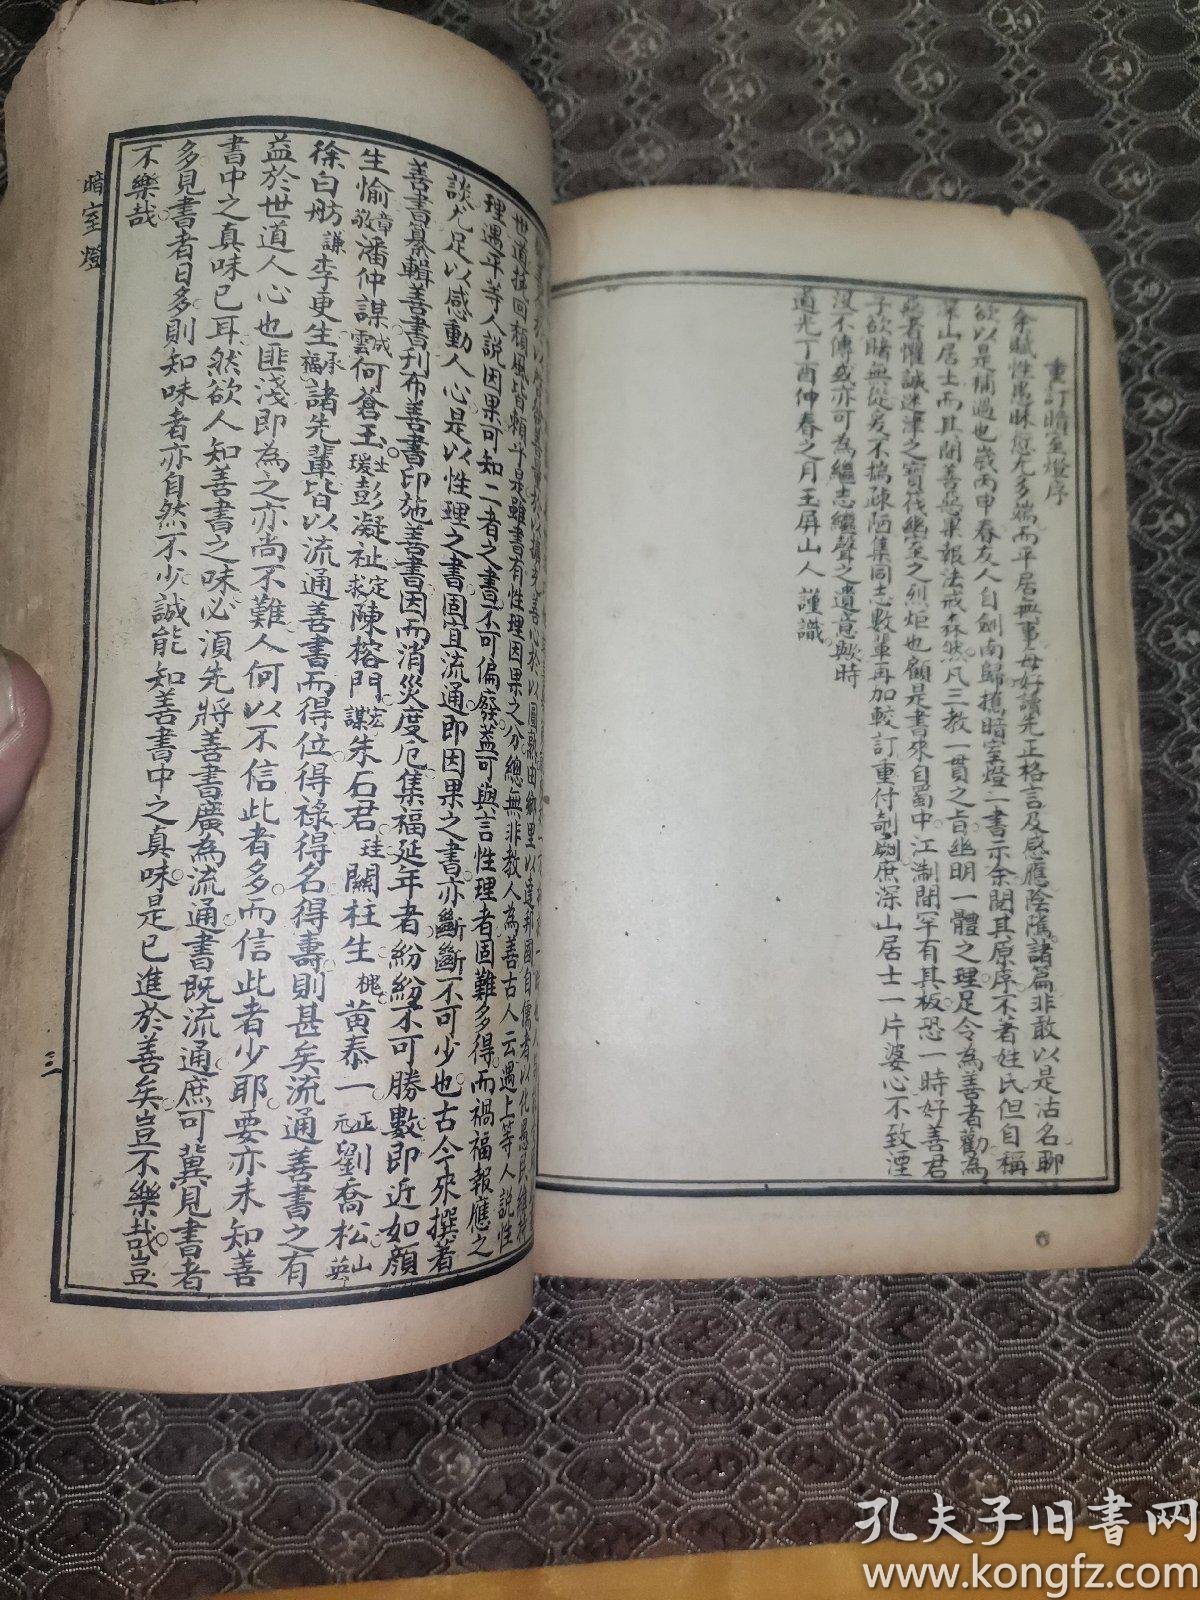 重訂暗室燈序
余賦性愚昧愆尤多端而平居無事每好讀先正格言及感應陰隲諸篇非敢以是沽名聊
欲以是補過也歲丙申春友人自劍南歸携暗室燈二書示余閱其原序不著姓氏但自稱
深山居士而其間善惡果報法戒森然凡三教一貫之旨幽明一體之理足令為善者勸為
惡者懼誠迷津之寶筏幽室之烈炬也顧是書來自蜀中江淛間罕有其板恐一時好善君
子欲睹無從爰不揣疎陋集同志數軰再加較訂重付剞劂庶深山居士一片婆心不致湮
沒不傳或亦可為繼志繼聲之遺意歟時
道光丁酉仲春之月玉屏山人謹識
6
世道挽回頹風皆賴乎是雖書有性理因果之分總無非教人為善古人云遇上等人說性
理遇平等人說因果可知二者之書不可偏廢蓋可與言性理者固難多得而禍福報應之
談尤足以感動人心是以性理之書固宜流通即因果之書亦斷斷不可少也古今來撰著
善書纂輯善書刊布善書印施善書因而消災度厄集福延年者紛紛不可勝數即近如顏
生愉章敬潘仲謀成雲何蒼玉士瑗彭凝祉定求陳榕門宏謀朱石君珪關柱生槐黃泰一正元劉喬松山英
徐白舫謙李更生承福諸先輩皆以流通善書而得位得祿得名得壽則甚矣流通善書之有
益於世道人心也匪淺即為之亦尚不難人何以不信此者多而信此者少耶要亦未知善
書中之真味已耳然欲人知善書之味必須先將善書廣為流通書既流通庶可冀見書者
多見書者日多則知味者亦自然不少誠能知善書中之真味是已進於善矣豈不樂哉豈
不樂哉
暗室燈
三
孔夫子旧书网
www.kongfz.com